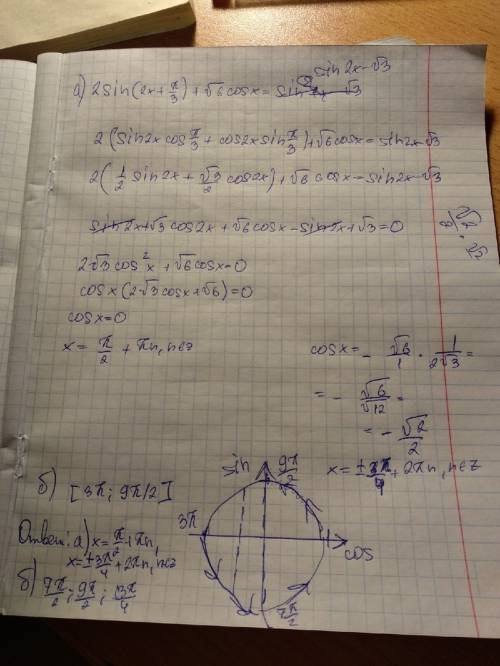 sin2x-√3
а) 2sin(2x+π/3)+√6cosx=
2(sin2x cos π/3 + cos2x sin π/3)+√6cosx=sin2x-√3
2(1/2 sin2x + √3/2 cos2x)+√6cosx=sin2x-√3
sin2x+√3cos2x+√6cosx-sin2x+√3=0
2√3cos²x+√6cosx=0
cosx(2√3cosx+√6)=0
cosx=0
x= π/2 + πn, n∈z
cosx= - √6/1 · 1/2√3 =
= - √6/√12 =
= - √2/2
x= ±3π/4 + 2πn, n∈z
б) [3π; 9π/2]
sin
9π/2
3π
cos
7π/2
Ответ: а) x= π/2+πn,
x= ±3π/4+2πn, n∈z
б) 7π/2; 9π/2; 13π/4